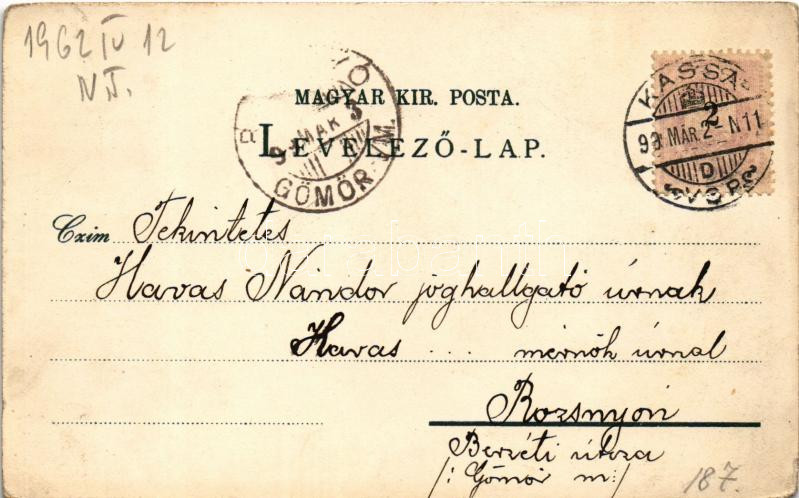 1962 IV 12
N.J.
MAGYAR KIR. POSTA.
LEVELEZŐ-LAP.
MAR 3
GÖMÖR M.
KASSA
2
99 MÁR. 2 - N11
D
Czim Tekintetes
Havas Nándor joghallgató úrnak
Havas ... mérnök úrnál
Rozsnyón
Berzéti útcza
/: Gömör m:/
187.